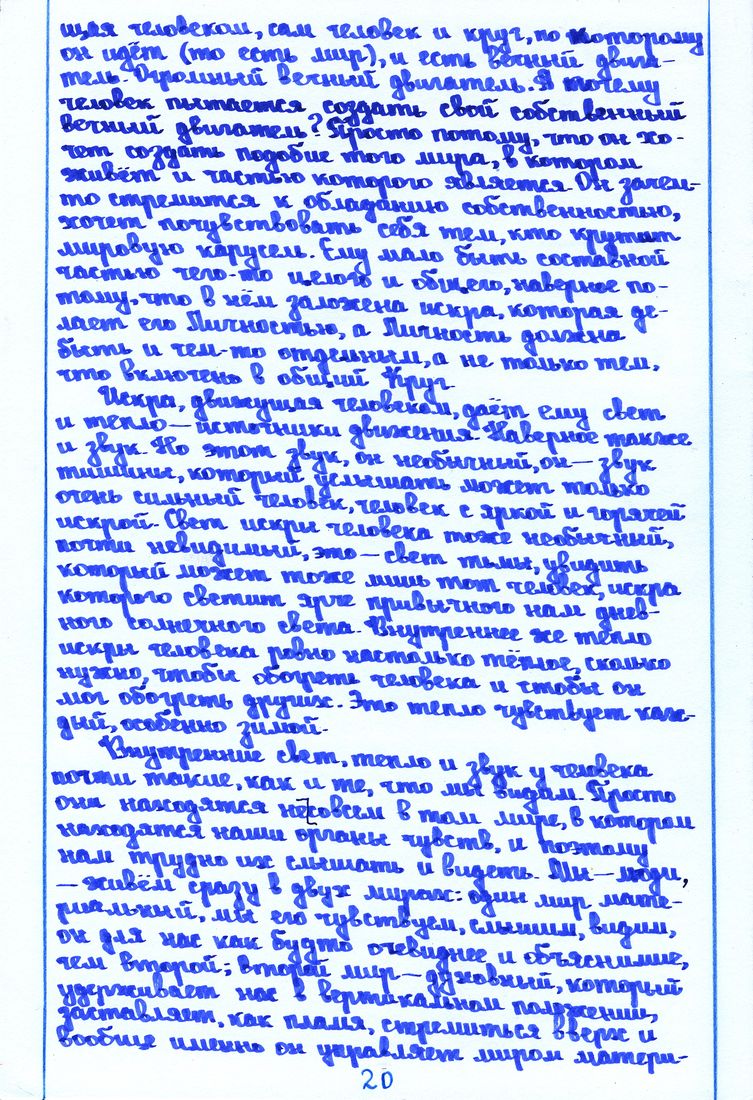 щая человеком, сам человек и круг, по которому
он идёт (то есть мир), и есть вечный двига-
тель. Огромный вечный двигатель. А почему
человек пытается создать свой собственный
вечный двигатель? Просто потому, что он хо-
чет создать подобие того мира, в котором
живёт и частью которого является. Он зачем-
то стремится к обладанию собственностью,
хочет почувствовать себя тем, кто крутит
мировую карусель. Ему мало быть составной
частью чего-то целого и общего, наверное по-
тому, что в нём заложена искра, которая де-
лает его Личностью, а Личность должна
быть и чем-то отдельным, а не только тем,
что включено в общий Круг.
Искра, движущая человеком, даёт ему свет
и тепло — источники движения. Наверное также
и звук. Но этот звук, он необычный, он — звук
тишины, который услышать может только
очень сильный человек, человек с яркой и горячей
искрой. Свет искры человека тоже необычный,
почти невидимый, это — свет тьмы, увидить
который может тоже лишь тот человек, искра
которого светит ярче привычного нам днев-
ного солнечного света. Внутреннее же тепло
искры человека ровно настолько тёплое, сколько
нужно, чтобы обогреть человека и чтобы он
мог обогреть других. Это тепло чувствует каж-
дый, особенно зимой.
Внутренние свет, тепло и звук у человека
почти такие, как и те, что мы видам. Просто
они находятся несовсем в том мире, в котором
находятся наши органы чувств, и поэтому
нам трудно их слышать и видеть. Мы — люди,
— живём сразу в двух мирах: один мир мате-
риальный, мы его чувствуем, слышим, видим,
он для нас как будто очевиднее и объяснимие,
чем второй; второй мир — духовный, который
удерживает нас в вертикальном положении,
заставляет, как пламя, стремиться вверх и
вообще именно он управляет миром матери-
20